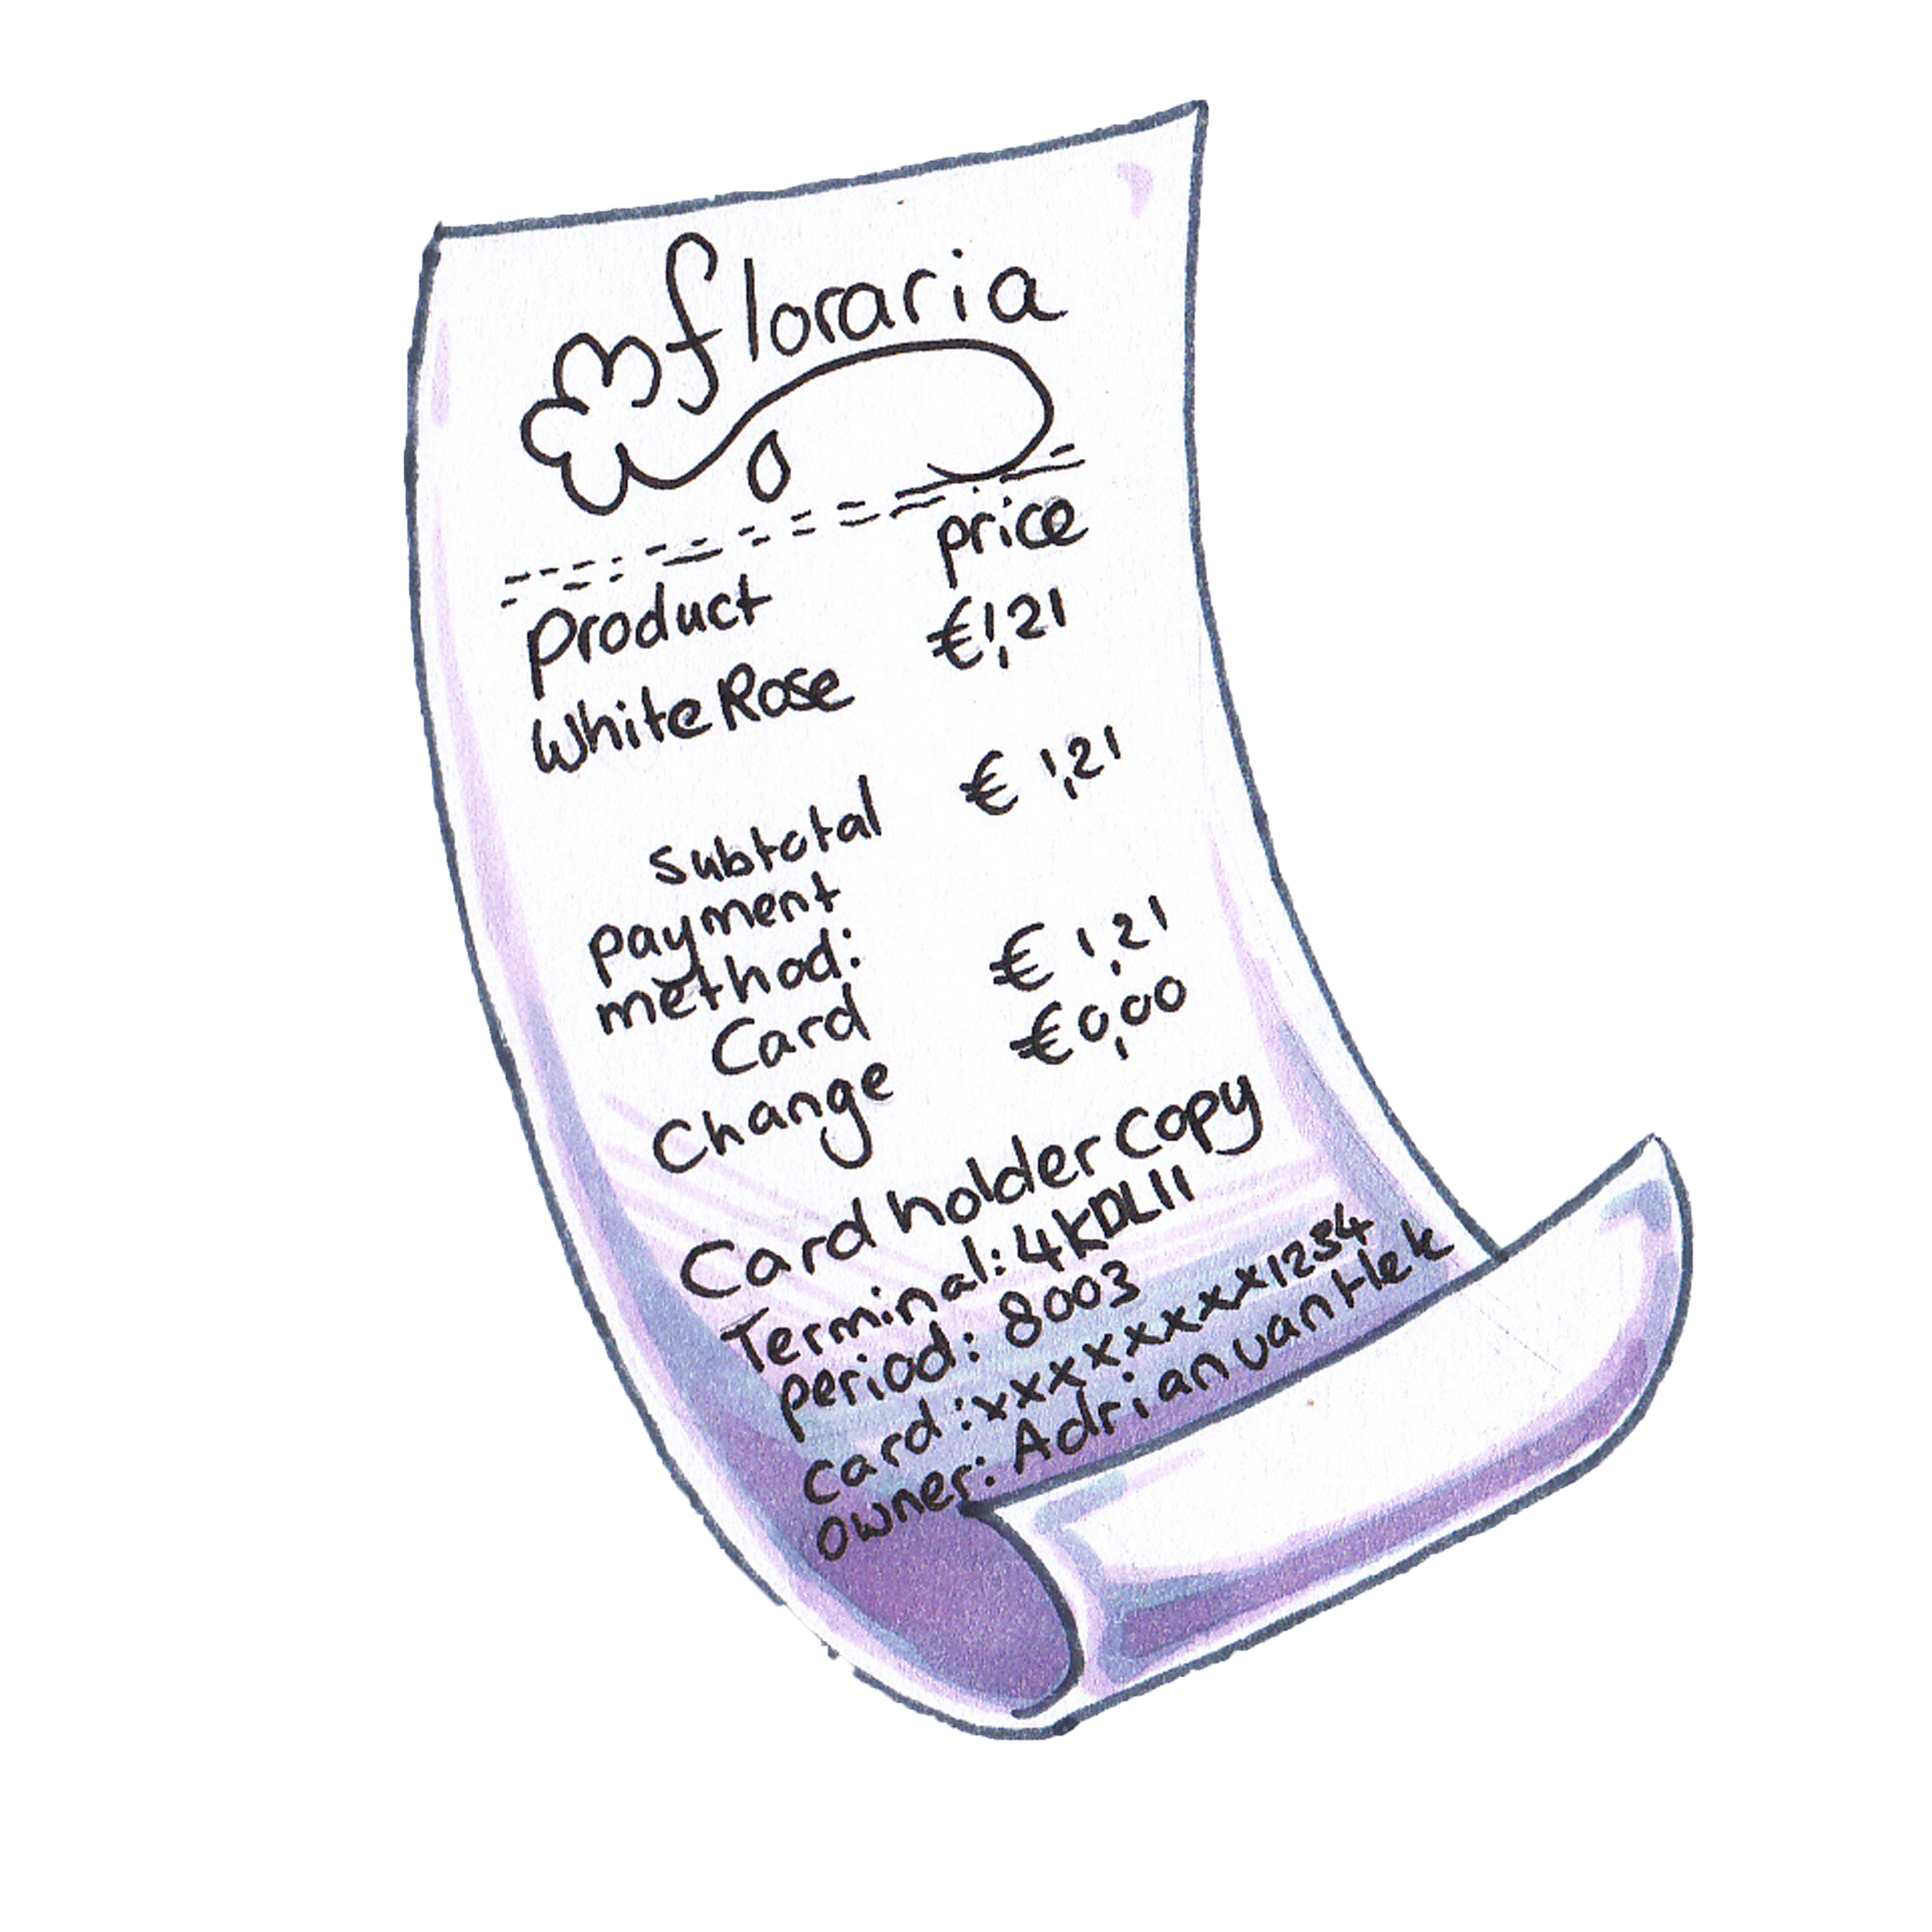 floraria
product price
White Rose €1,21
subtotal € 1,21
payment
method:
Card € 1,21
Change €0,00
Card holder Copy
Terminal: 4KDL11
period: 8003
Card: xxxxxxxxx1234
owner: Adrian van Hek